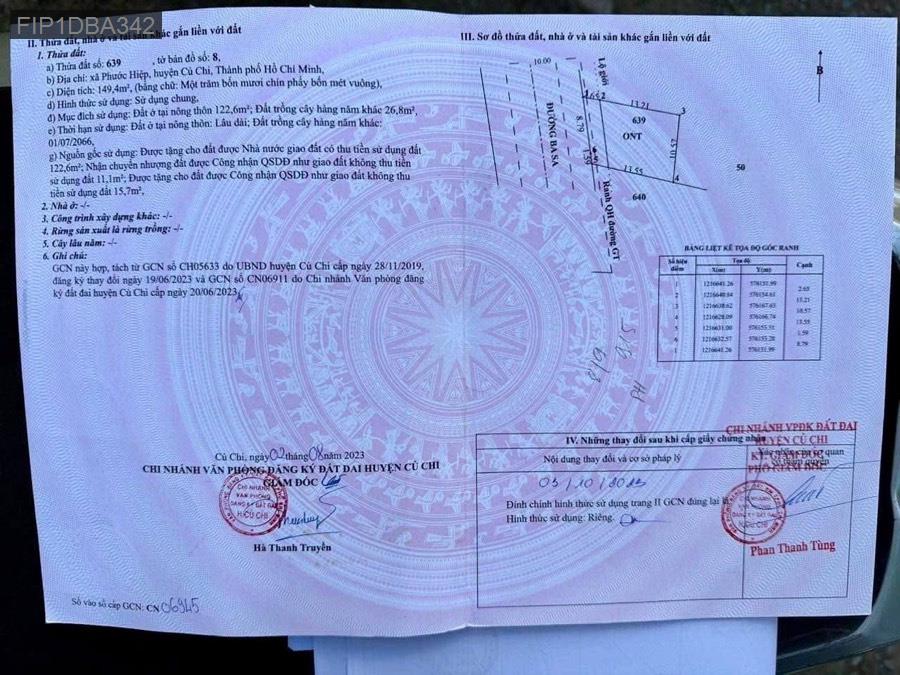 FIP1DBA342
II. Thửa đất, nhà ở và tài sản khác gắn liền với đất
1. Thửa đất:
a) Thửa đất số: 639 , tờ bản đồ số: 8,
b) Địa chỉ: xã Phước Hiệp, huyện Củ Chi, Thành phố Hồ Chí Minh,
c) Diện tích: 149,4m², (bằng chữ: Một trăm bốn mươi chín phẩy bốn mét vuông),
d) Hình thức sử dụng: Sử dụng chung,
đ) Mục đích sử dụng: Đất ở tại nông thôn 122,6m²; Đất trồng cây hàng năm khác 26,8m²,
e) Thời hạn sử dụng: Đất ở tại nông thôn: Lâu dài; Đất trồng cây hàng năm khác:
01/07/2066,
g) Nguồn gốc sử dụng: Được tặng cho đất được Nhà nước giao đất có thu tiền sử dụng đất
122,6m²; Nhận chuyển nhượng đất được Công nhận QSDĐ như giao đất không thu tiền
sử dụng đất 11,1m²; Được tặng cho đất được Công nhận QSDĐ như giao đất không thu
tiền sử dụng đất 15,7m²,
2. Nhà ở: -/-
3. Công trình xây dựng khác: -/-
4. Rừng sản xuất là rừng trồng: -/-
5. Cây lâu năm: -/-
6. Ghi chú:
GCN này hợp, tách từ GCN số CH05633 do UBND huyện Củ Chi cấp ngày 28/11/2019,
đăng ký thay đổi ngày 19/06/2023 và GCN số CN06911 do Chi nhánh Văn phòng đăng
ký đất đai huyện Củ Chi cấp ngày 20/06/2023
Củ Chi, ngày 02 tháng 08 năm 2023
CHI NHÁNH VĂN PHÒNG ĐĂNG KÝ ĐẤT ĐAI HUYỆN CỦ CHI
GIÁM ĐỐC
CHI NHÁNH
VĂN PHÒNG
ĐĂNG KÝ ĐẤT ĐAI
H.CỦ CHI
Hà Thanh Truyền
Số vào sổ cấp GCN: CN 06945
III. Sơ đồ thửa đất, nhà ở và tài sản khác gắn liền với đất
B
10.00
Lộ giới
ĐƯỜNG BA SA
8.79
1.59
13.21
3
639
ONT
10.57
13.55
4
640
50
Ranh QH đường GT
BẢNG LIỆT KÊ TỌA ĐỘ GÓC RANH
Số hiệu điểm Tọa độ Cạnh
X(m) Y(m)
1 1216641.26 576151.99
2.65
2 1216640.84 576154.61
13.21
3 1216638.62 576167.63
10.57
4 1216628.09 576166.74
13.55
5 1216631.00 576153.51
1.59
6 1216632.57 576153.28
8.79
1 1216641.26 576151.99
IV. Những thay đổi sau khi cấp giấy chứng nhận
Nội dung thay đổi và cơ sở pháp lý
Xác nhận của cơ quan
có thẩm quyền
03/10/2023
Đính chính hình thức sử dụng trang II GCN đúng lại là
Hình thức sử dụng: Riêng.
CHI NHÁNH VPĐK ĐẤT ĐAI
HUYỆN CỦ CHI
KT. GIÁM ĐỐC
PHÓ GIÁM ĐỐC
CHI NHÁNH
VĂN PHÒNG
ĐĂNG KÝ ĐẤT ĐAI
H.CỦ CHI
Phan Thanh Tùng